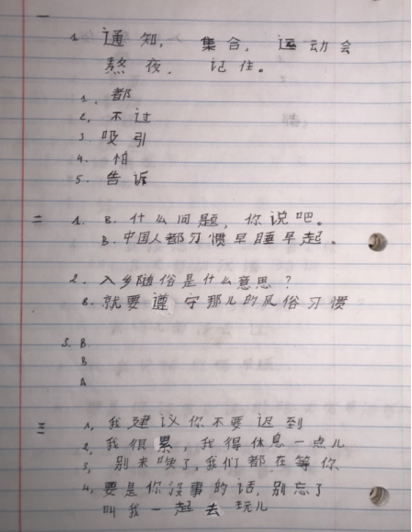 一
1. 通知, 集合, 运动会
熬夜, 记住。
1. 都
2. 不过
3. 吸引
4. 怕
5. 告诉
二 1. B. 什么问题, 你说吧。
B. 中国人都习惯早睡早起。
2. 入乡随俗是什么意思?
B. 就要遵守那儿的风俗习惯
3. B
B
A
三 1, 我建议你不要迟到
2, 我很累, 我得休息一点儿
3, 别来晚了, 我们都在等你
4, 要是你没事的话, 别忘了
叫我一起去玩儿